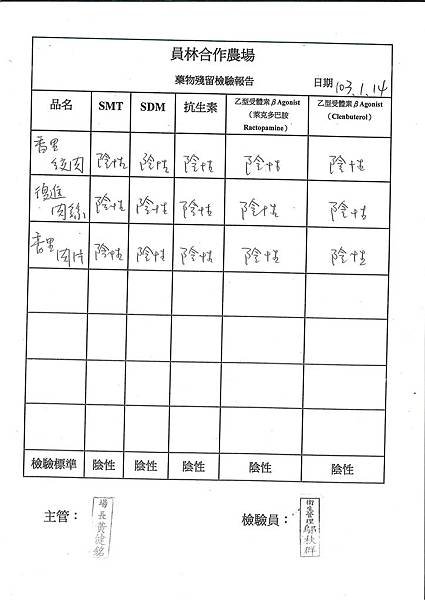 員林合作農場
藥物殘留檢驗報告
日期 103.1.14
品名 SMT SDM 抗生素 乙型受體素βAgonist（萊克多巴胺 Ractopamine） 乙型受體素βAgonist (Clenbuterol)
香里絞肉 陰性 陰性 陰性 陰性 陰性
德進肉絲 陰性 陰性 陰性 陰性 陰性
香里肉片 陰性 陰性 陰性 陰性 陰性
檢驗標準 陰性 陰性 陰性 陰性 陰性
主管： 場長黃健銘
檢驗員： 衛生管理 秋群